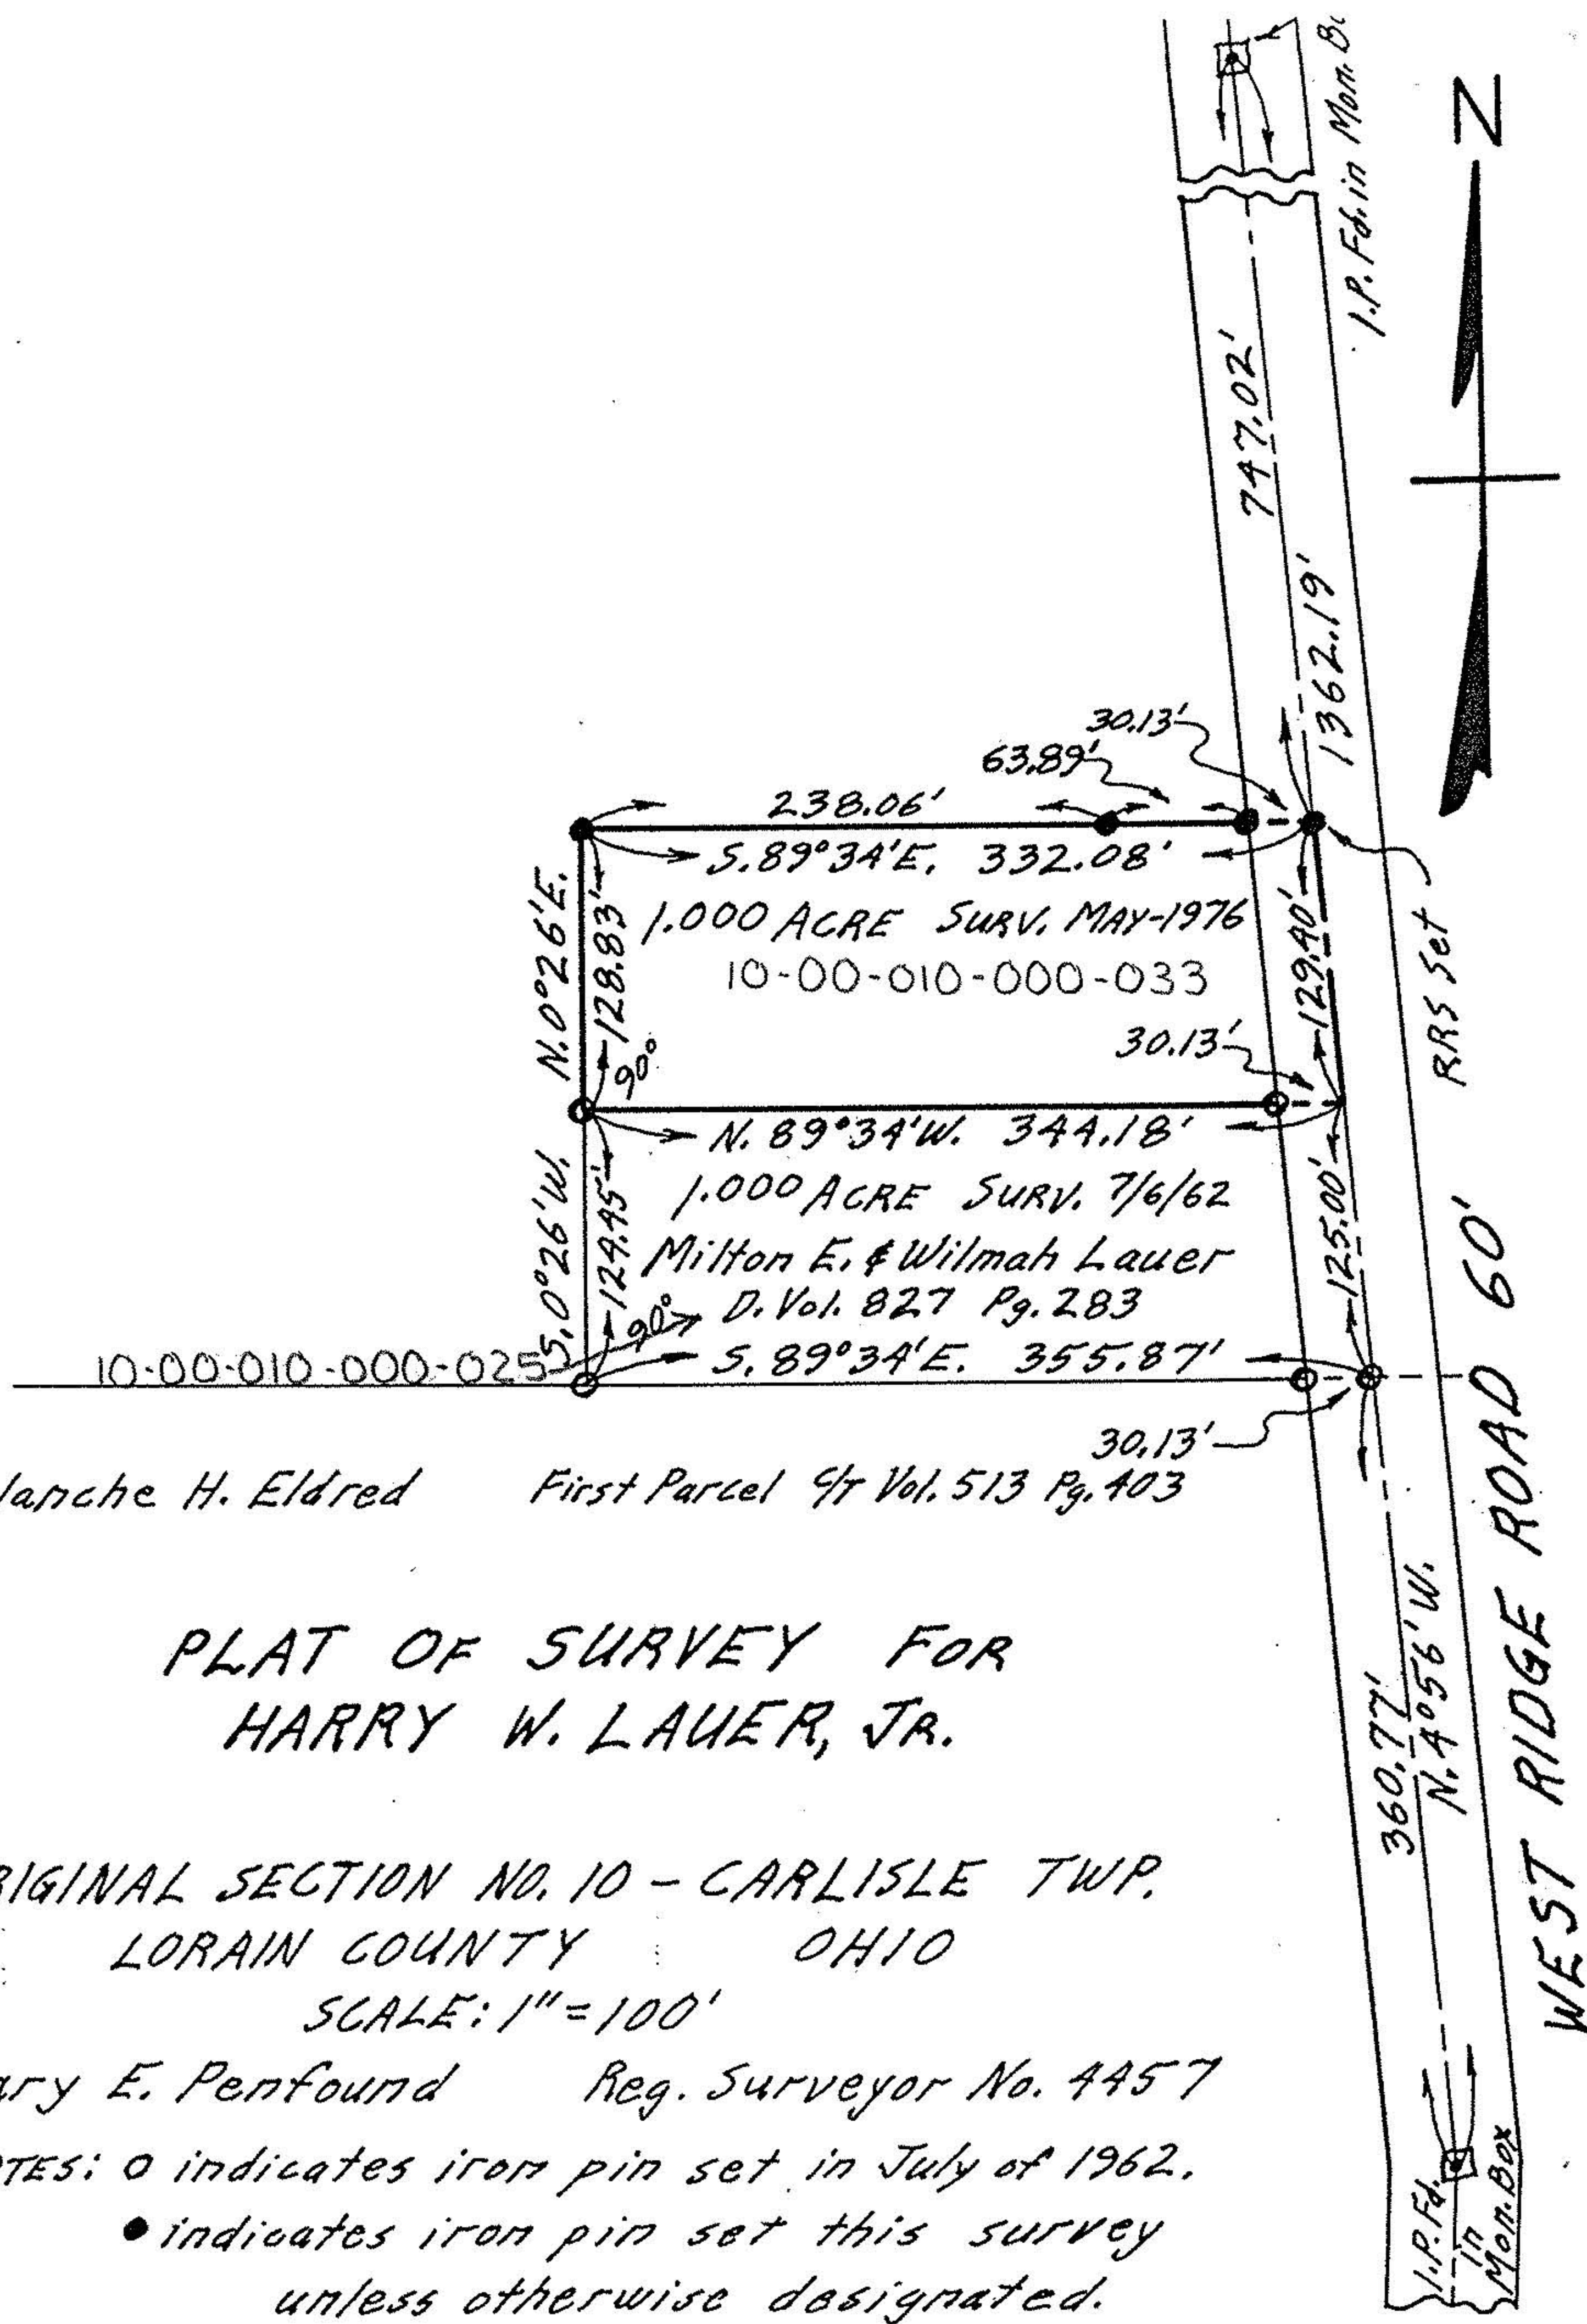 I.P. Fd. in Mon.
N
747.02'
1362.19'
30.13'
63.89'
238.06'
S. 89°34' E. 332.08'
N. 0°26' E.
128.83'
1.000 ACRE SURV. MAY-1976
10-00-010-000-033
129.40'
RRS Set
90°
30.13'
N. 89°34' W. 344.18'
S. 0°26' W.
124.45'
1.000 ACRE SURV. 7/6/62
Milton E. & Wilmah Lauer
D. Vol. 827 Pg. 283
125.00'
90°
10-00-010-000-025
S. 89°34' E. 355.87'
30.13'
lanche H. Eldred First Parcel C/T Vol. 513 Pg. 403
WEST RIDGE ROAD 60'
360.77'
N. 4°56' W.
PLAT OF SURVEY FOR
HARRY W. LAUER, JR.
RIGINAL SECTION NO. 10 - CARLISLE TWP.
LORAIN COUNTY OHIO
SCALE: 1" = 100'
ary E. Penfound Reg. Surveyor No. 4457
OTES: o indicates iron pin set in July of 1962.
● indicates iron pin set this survey
unless otherwise designated.
I.P. Fd.
in
Mon. Box